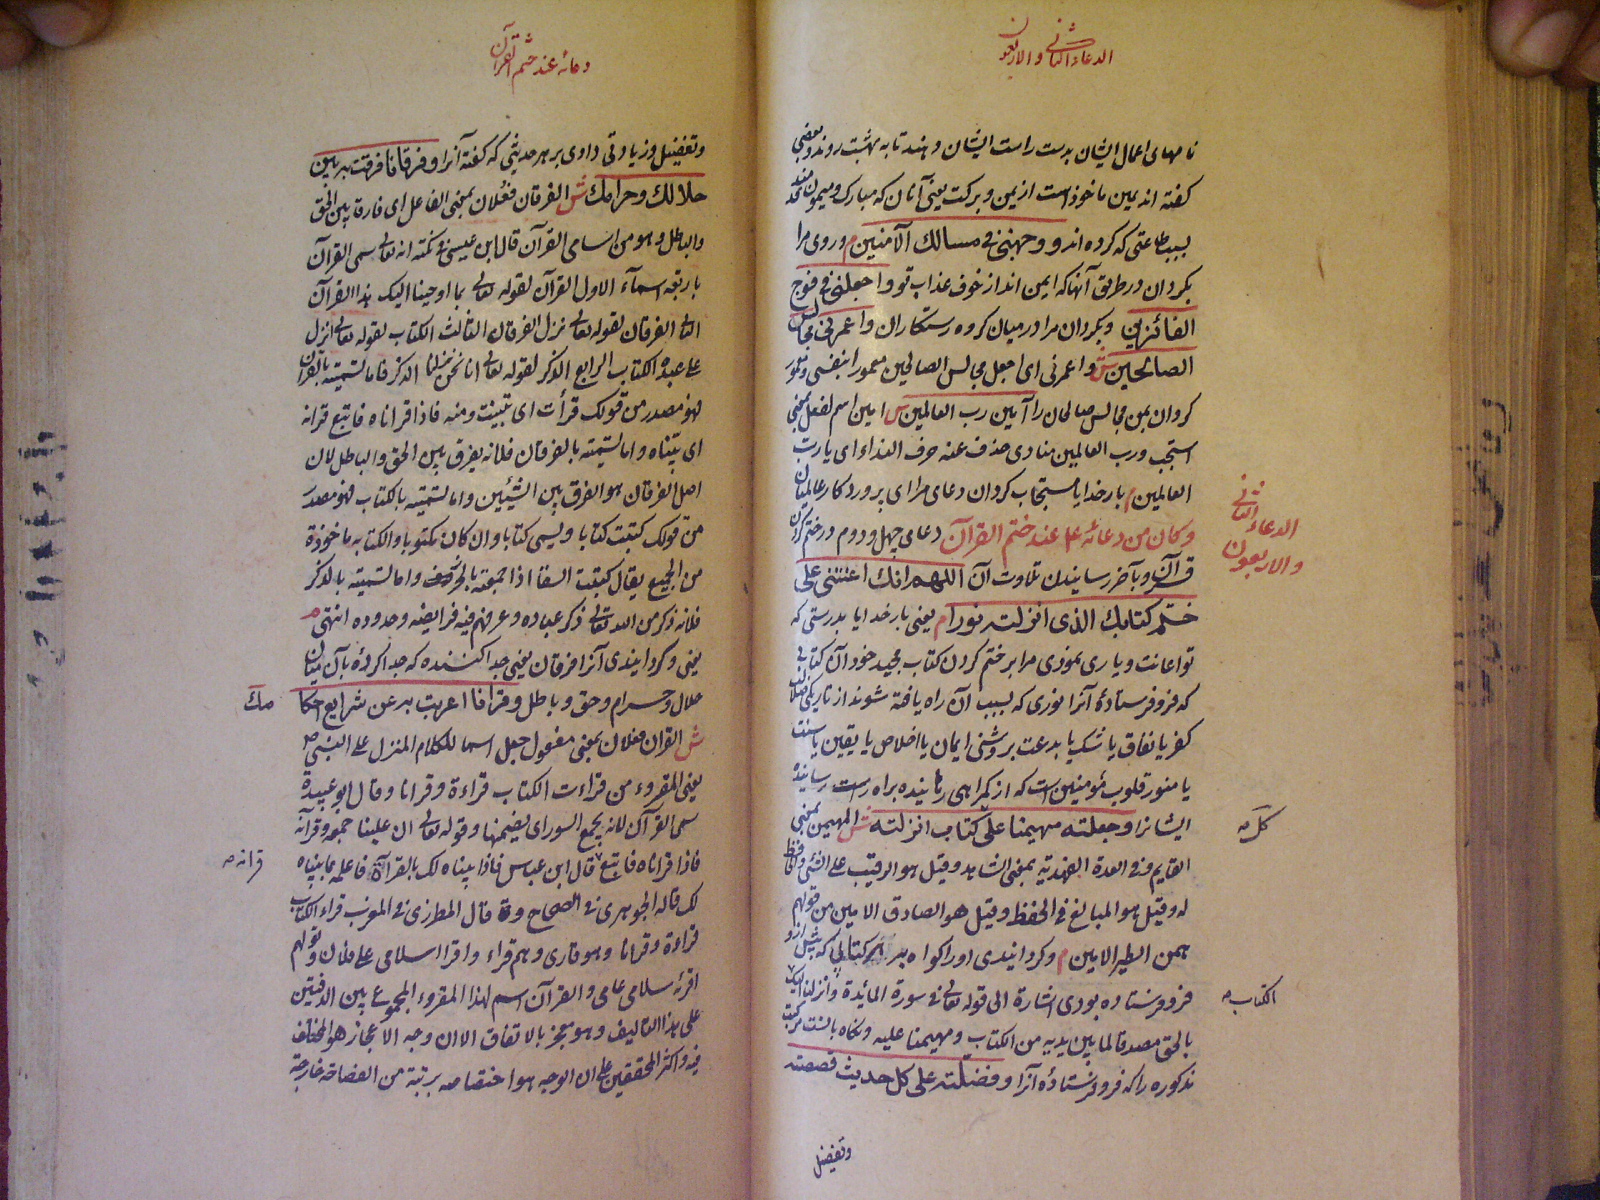 الدعاء الثاني والاربعون
نامهای اعمال ایشان بدست راست ایشان دهند تا به بهشت روند و بعضی
کفته اند یمین ماخوذ است از یمن و برکت یعنی آنان که مبارک و میمون
بسبب طاعتی که کرده اند و وجهنی فی مسالك الآمنین م و روی مرا
بکردان در طریق آنها که ایمن اند از خوف عذاب تو و اجعلنی فی فوج
الفائزین و بکردان مرا در میان کروه رستکاران و اعمر بی مجالس
الصالحین ش و اعمر بی ای اجعل مجالس الصالحین معمورا بنفسی و معمور
کردان بمن مجالس صالحان را آمین رب العالمین س امین اسم لفعل بمعنی
استجب و رب العالمین منادی حذف عنه حرف النداء ای یا رب
العالمین م بار خدایا مستجاب کردان دعای مرا ای پروردکار عالمیان
و کان من دعائه ع عند ختم القرآن دعای چهل و دوم در ختم کردن
قرآن و بآخر رسانیدن تلاوت آن اللهم انك اعنتنی علی
ختم کتابك الذی انزلته نورا م یعنی بار خدایا بدرستی که
تو اعانت و یاری نمودی مرا بر ختم کردن کتاب مجید خود آن کتابی
که فرو فرستادهٔ آنرا نوری که بسبب آن راه یافته شوند از تاریکی ضلالت
کفر یا نفاق یا شک یا بدعت بروشنی ایمان یا اخلاص یا یقین یا سنت
یا منور قلوب مؤمنین است که از کمراهی رهانیده براه راست رسانیده
ایشانرا و جعلته مهیمنا علی کتاب انزلته ش المهیمن بمعنی
القایم و فی العدة الفهدیة بمعنی الشاهد و قیل هو الرقیب علی الشئ و الحافظ
له و قیل هو المبالغ فی الحفظ و قیل هو الصادق الامین من قولهم
همن الطیر الامین م و کردانیدی او را کواه بر کتابی که پیش ازو
فرو فرستاده بودی اشارة الی قوله تعالی فی سورة المائدة و انزلنا الیک
بالحق مصدقا لما بین یدیه من الکتاب و مهیمنا علیه و نکاه بانست
مذکوره را که فرو فرستادهٔ آنرا و فضلته علی کل حدیث قصصته
الدعاء الثانی
والاربعون
کل
الکتاب
وتفضیل
دعائه عند ختم القرآن
وتفضیل و زیادتی دادی بر هر حدیثی که کفتهٔ آنرا و فرقانا فرقت به بین
حلالك و حرامك ش الفرقان فعلان بمعنی الفاعل ای فارقا بین الحق
والباطل و هو من اسامی القرآن قال ابن عیسی فی نکته انه تعالی سمی القرآن
باربعة اسمآء الاول القرآن لقوله تعالی بما اوحینا الیک هذا القرآن
الثانی الفرقان لقوله تعالی نزل الفرقان الثالث الکتاب لقوله تعالی انزل
علی عبده الکتاب الرابع الذکر لقوله تعالی انا نحن نزلنا الذکر فاما تسمیته بالقرآن
فهو مصدر من قولک قرأت ای بینت و منه فاذا قراناه فاتبع قرانه
ای بیناه و اما تسمیته بالفرقان فلانه یفرق بین الحق و الباطل لان
اصل الفرقان هو الفرق بین الشیئین و اما تسمیته بالکتاب فهو مصدر
من قولک کتبت کتابا و یسمی کتابا و ان کان مکتوبا و الکتابه ماخوذة
من الجمع یقال کتبت السقا اذا جمعته بالخرز و اما تسمیته بالذکر
فلانه ذکر من الله تعالی ذکر عباده و عرفهم فیه فرایضه و حدوده انتهی م
یعنی و کردانیدی آنرا فرقان یعنی جدا کننده که جدا کردهٔ بآن میان
حلال و حرام و حق و باطل و قرآنا اعربت به عن شرایع احکا
ش القران فعلان بمعنی مفعول جعل اسما للکلام المنزل علی النبی ص
یعنی المقروء من قراءت الکتاب قراءة و قرانا و قال ابو عبیدة
سمی القرآن لانه یجمع السور ای یضمها و قوله تعالی ان علینا جمعه و قرآنه
فاذا قراناه فاتبع قال ابن عباس فاذا بیناه لک بالقراءة فاعمل بما بیناه
لک قاله الجوهری فی الصحاح و قال المطرزی فی المغرب قراء الکتاب
قراءة و قرانا و هو قاری و هم قراء و اقرا سلامی علی فلان و قولهم
اقرئه سلامی عامی و القرآن اسم لهذا المقروء المجموع بین الدفتین
علی هذا التالیف و هو معجز بالاتفاق الا ان وجه الاعجاز هو المختلف
فیه و اکثر المحققین علی ان الوجه هو اختصاصه برتبة من الفصاحة خارجة
مك
قرانه